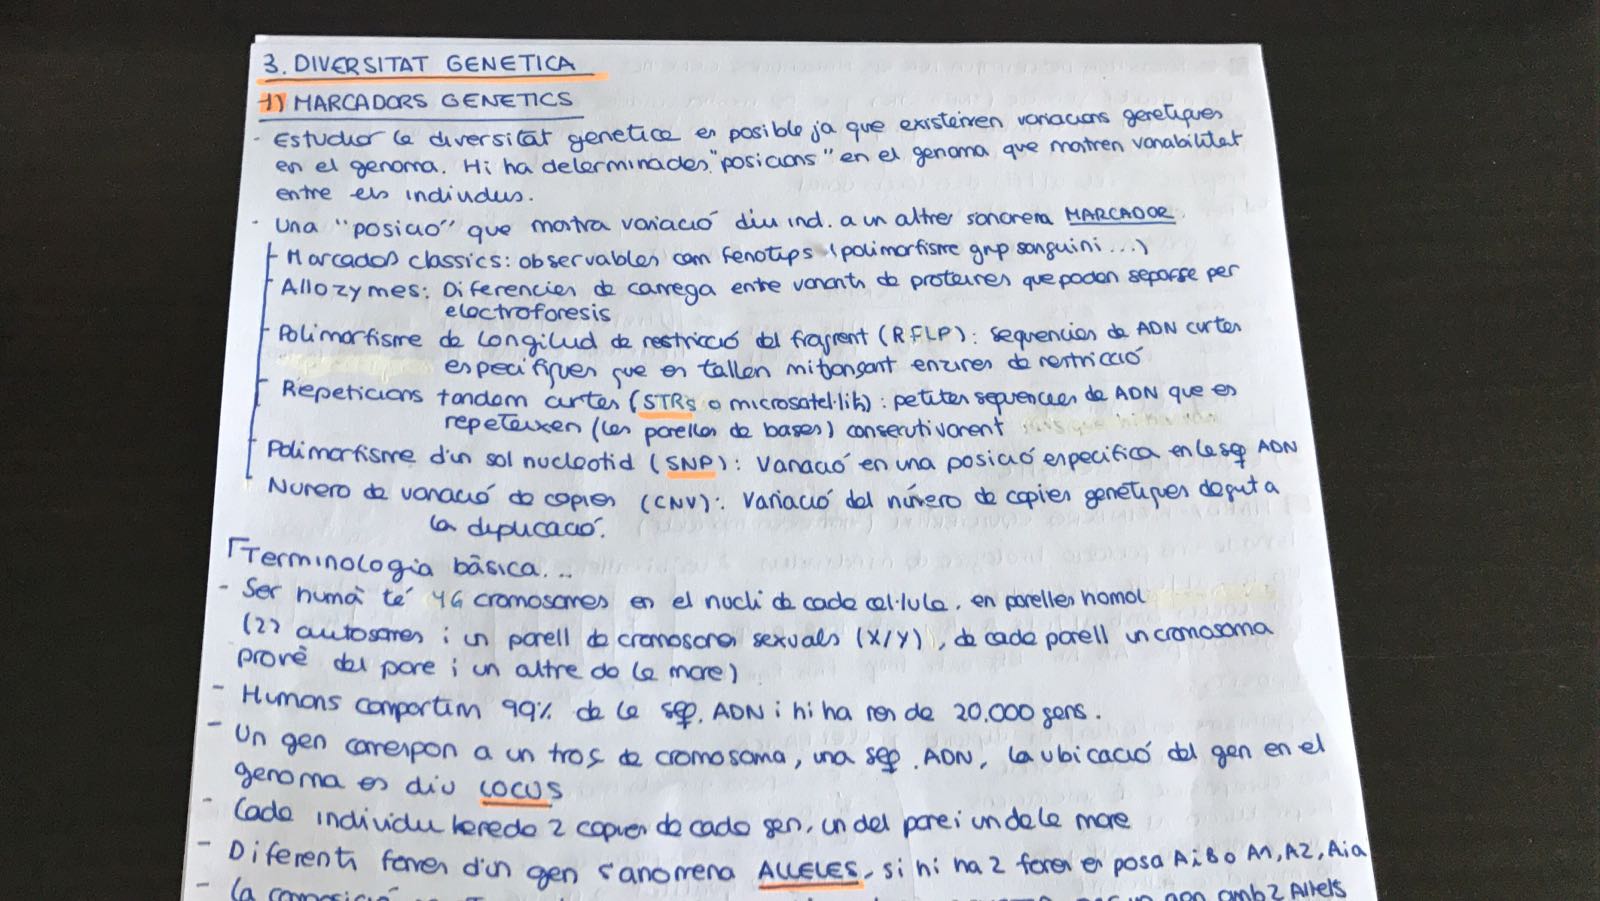 3. DIVERSITAT GENETICA
1) MARCADORS GENETICS
- Estudiar la diversitat genetica es posible ja que existeixen variacions genetiques
en el genoma. Hi ha determinades "posicions" en el genoma que mostren variabilitat
entre els individus.
- Una "posicio" que mostra variació d'un ind. a un altre s'anomena MARCADOR
Marcados classics: observables com fenotips (polimorfisme grup sanguini ...)
Allozymes: Diferencies de carrega entre variants de proteines que poden separse per
electroforesis
Polimorfisme de Longitud de restricció del fragment (RFLP): sequencies de ADN curtes
especifiques que es tallen mitjançant enzimes de restricció
Repeticions tandem curtes (STRs o microsatel·lits): petites sequencies de ADN que es
repeteixen (les parelles de bases) consecutivament
Polimorfisme d'un sol nucleotid (SNP): Variació en una posició especifica en la seq ADN
Numero de variació de copies (CNV): Variació del número de copies genetiques degut a
la duplicació.
Terminologia bàsica...
- Ser humà té 46 cromosomes en el nucli de cada cel·lula, en parelles homol
(22 autosomes i un parell de cromosomes sexuals (X/Y), de cada parell un cromosoma
provè del pare i un altre de la mare)
- Humans compartim 99% de la seq. ADN i hi ha mes de 20.000 gens.
- Un gen correspon a un tros de cromosoma, una seq. ADN, la ubicació del gen en el
genoma es diu LOCUS
- Cada individu hereda 2 copies de cada gen, un del pare i un de la mare
- Diferents formes d'un gen s'anomena ALLELES, si hi ha 2 formes es posa A i B o A1, A2, A i a
- la composició gen amb 2 Allels